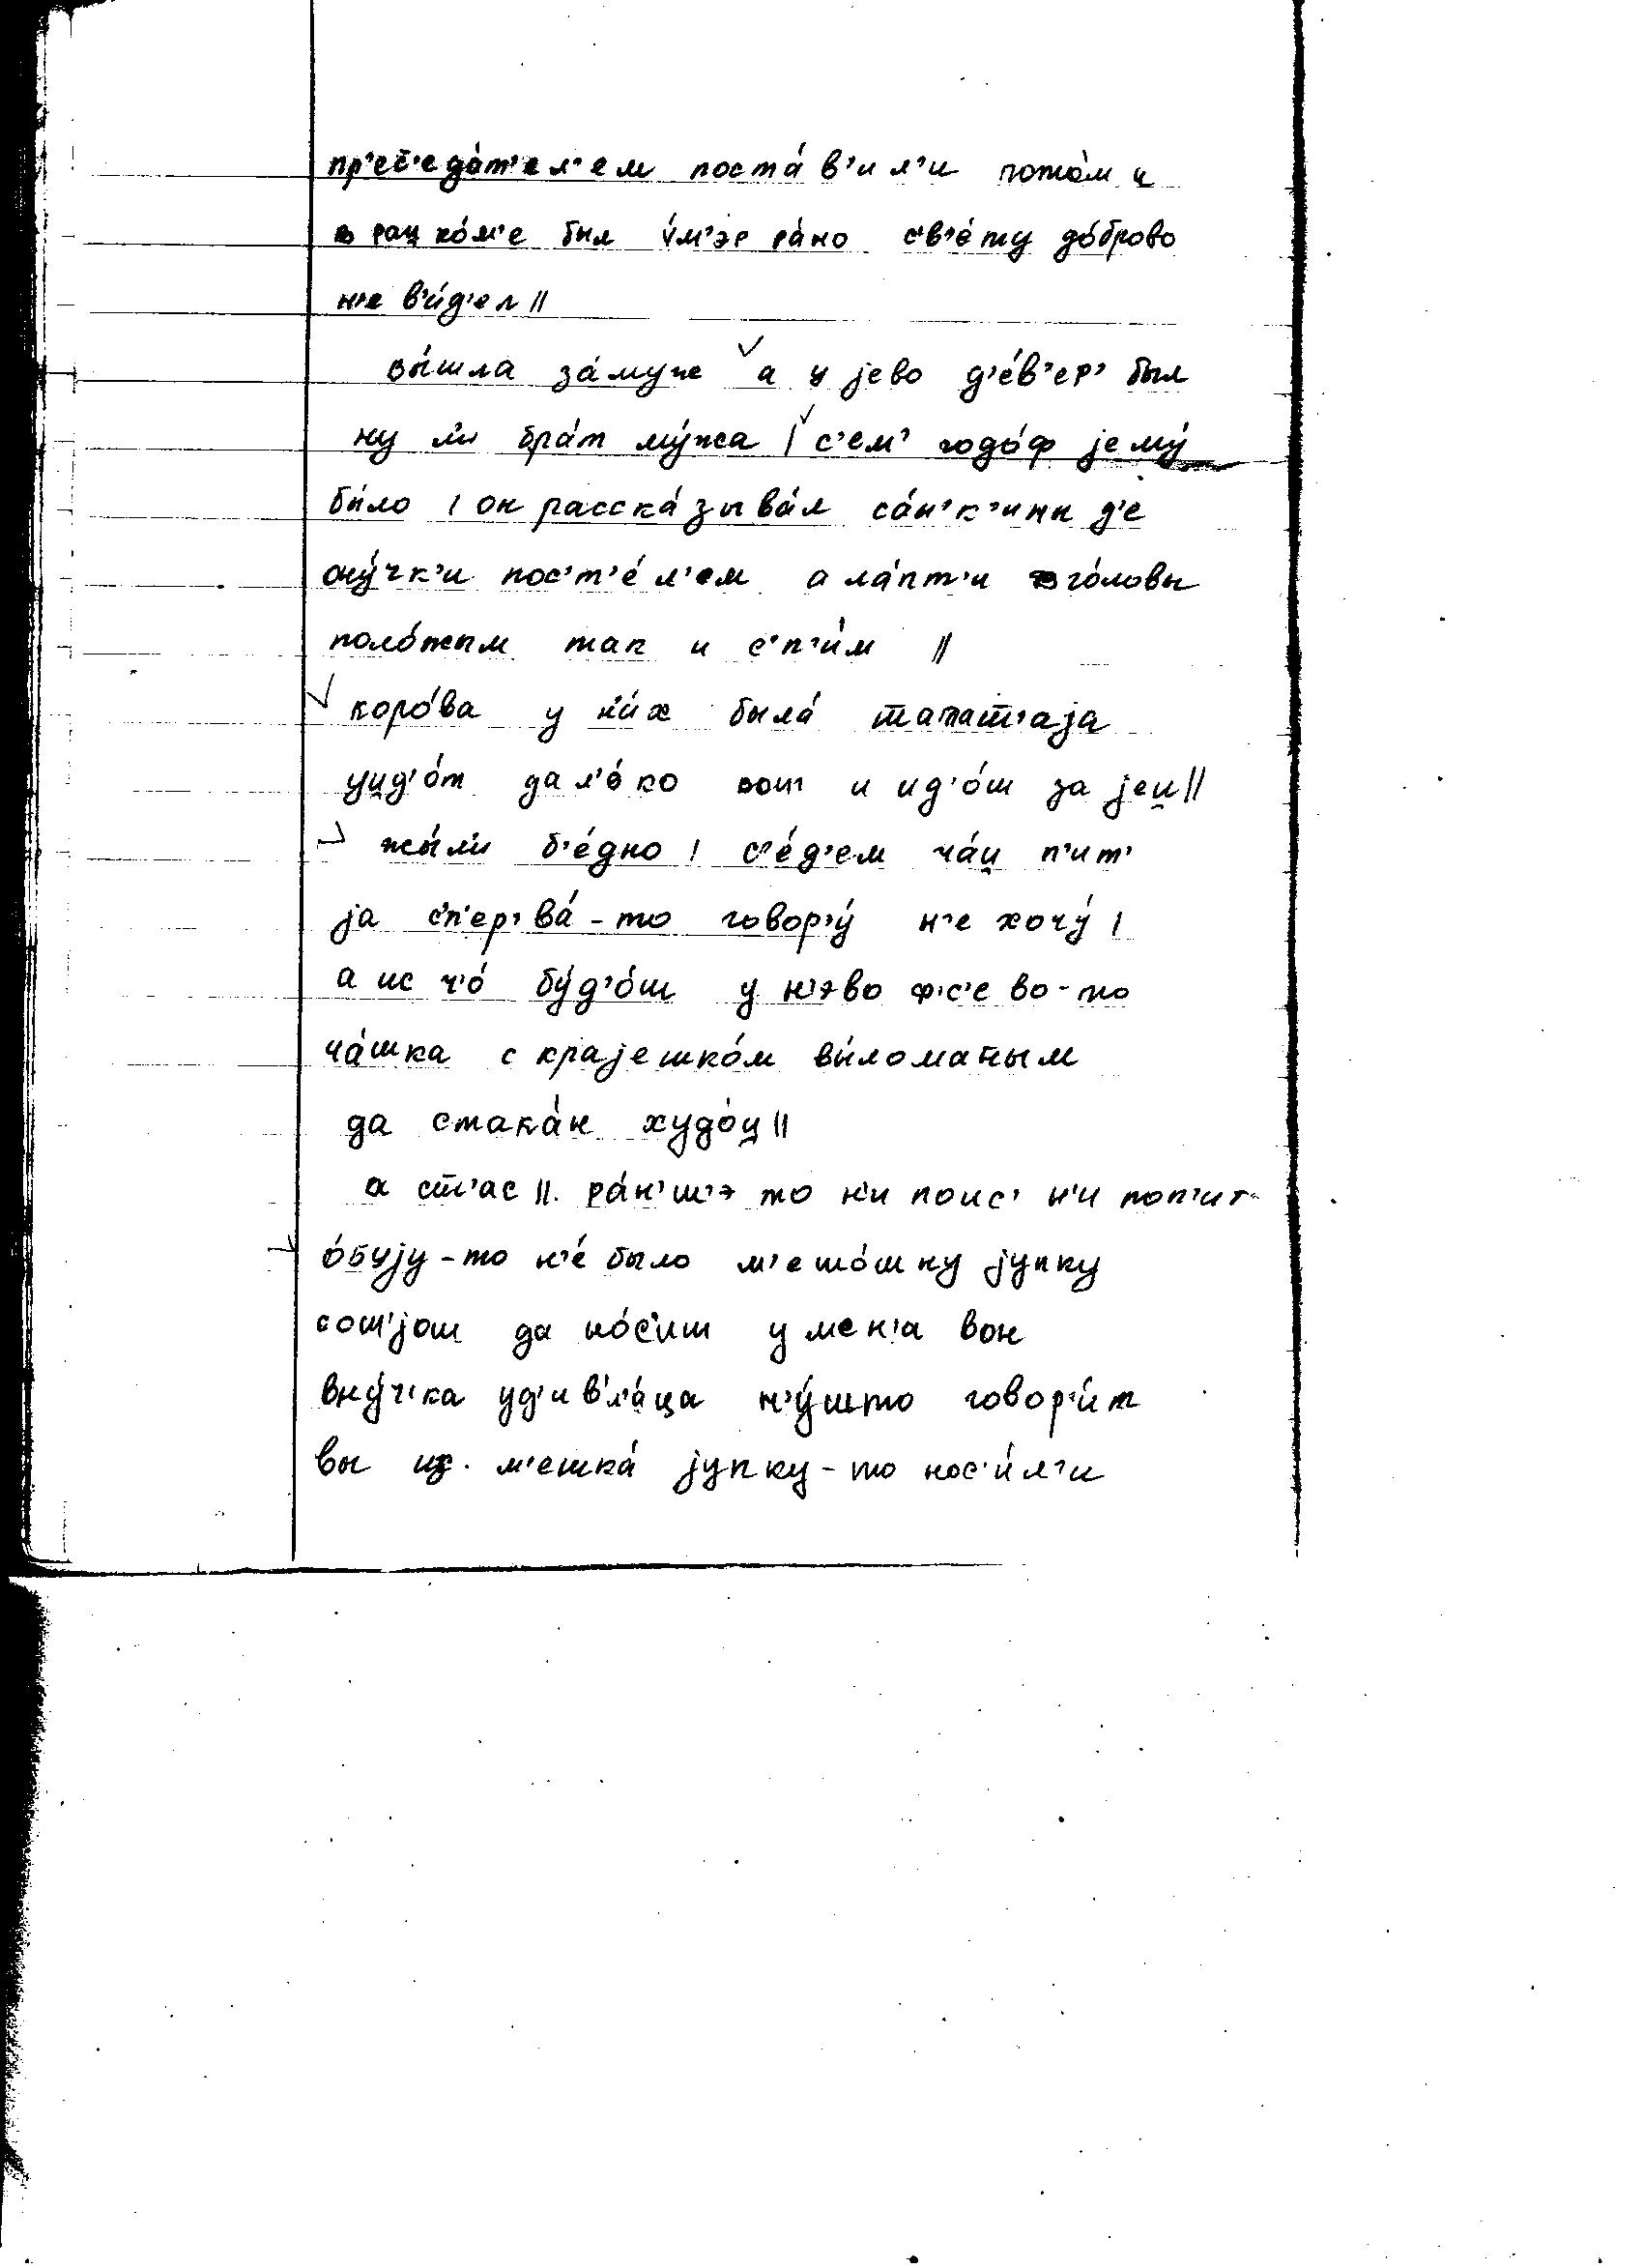 пр'ец̅'еда́т'ел'ем поста́в'ил'и пото́м и̯
в раи̯ко́м'е был у́м'эр ра́но с'в'е́ту до́брово
н'е в'и́д'ел ||
вы́шла за́муж а у jево д'е́в'ер' был
ну л'и бра́т му́жа | с'ем' годо́ф jему́
бы́ло | он расска́зыва́л са́н'к'ины д'е
ону́чк'и пос'т'е́л'ем а ла́пт'и в го́ловы
поло́жым так и с'п'и́м ||
коро́ва у н'и́х была́ шаташ̅'аjа
уи̯д'о́т дал'о́ко вот и ид'о́ш за jеи̯ ||
жы́л'и б'е́дно | с'е́д'ем ча́и̯ п'ит'
jа с'п'ер'ва́-то говор'у́ н'е хочу́ |
а ис ч'о́ бу́д'о́ш у н'эво ф'с'ево-то
ча́шка с краjешко́м вы́лома̅ным
да стака́н худо́и̯ ||
а сш̅'ас ||. ра́н'ш'э то н'и поис' н'и поп'ит'
о́буjу-то н'е́ было м'ешо́шну jупку
сош'jош да но́с'иш у мен'а вон
вну́ч'ка уд'ив'л'а́ца н'у́што говор'и́т
вы из. м'ешка́ jупку-то нос'и́л'и